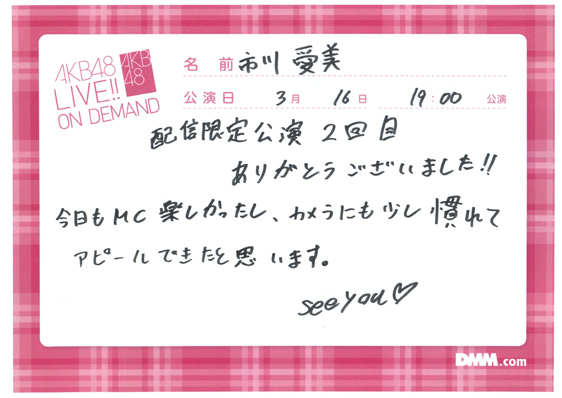 AKB48
LIVE!!
ON DEMAND
AKB
48
名 前 市川 愛美
公演日 3月 16日 19:00 公演
配信限定公演 2回目
ありがとうございました!!
今日もMC 楽しかったし、カメラにも少し慣れて
アピールできたと思います。
see you♡
DMM.com